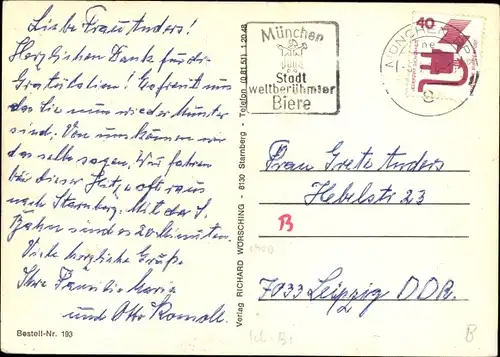 Liebe Frau Anders!
Herzlichen Dank für die
Gratulation! Es freut uns
das Sie nun wieder Munter
sind. Von uns können wir
das selbe sagen. Wir fahren
bei dieser Hitze oft raus
nach Starnberg. Mit der S.
Bahn sind es 20 Minuten.
Viele herzliche Grüße
Ihre Familie Maria
und Otto
Bestell-Nr. 193
Verlag RICHARD WÖRSCHING - 8130 Starnberg - Telefon (0 81 51) 1 20 48
München
Stadt
weltberühmter
Biere
MÜNCHEN
40
Frau Grete Anders
Hebelstr 23
B
7033 Leipzig DDR.
B